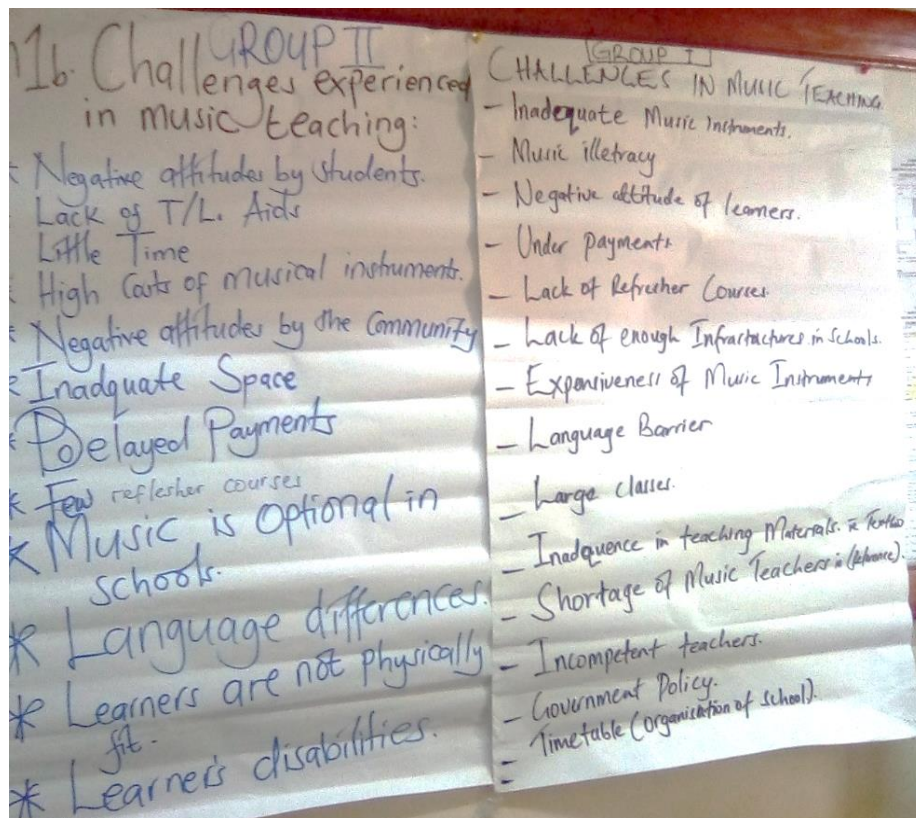 GROUP II
1b. Challenges experienced
in music teaching:
* Negative attitudes by students.
Lack of T/L. Aids
Little Time
* High Costs of musical instruments.
* Negative attitudes by the Community
* Inadquate Space
* Delayed Payments
* Few reflesher courses
* Music is Optional in
schools.
* Language differences.
* Learners are not physically
fit.
* Learner's disabilities.
GROUP I
CHALLENGES IN MUSIC TEACHING
- Inadequate Music Instruments.
- Music illetracy
- Negative attitude of learners.
- Under payments
- Lack of Refresher Courses.
- Lack of enough Infrastructures in schools.
- Expensiveness of Music Instruments
- Language Barrier
- Large classes.
- Inadquence in teaching Materials.
- Shortage of Music Teachers
- Incompetent teachers.
- Government Policy.
- Timetable (organisation of school).